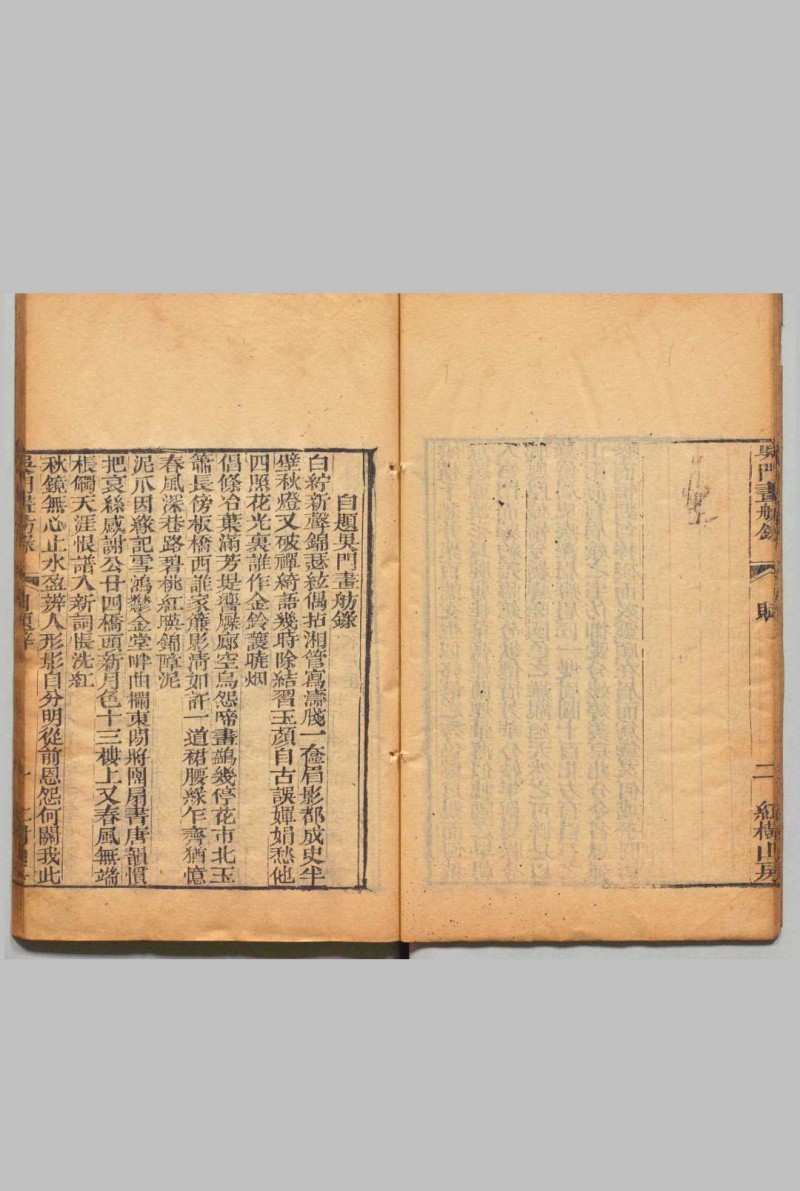 吳門畫舫錄
賦
二
紅樹山房
自題吳門畫舫錄
白紵新聲錦瑟絃偶拈湘管寫濤牋一奩眉影都成史半
壁秋燈又破禪綺語幾時除結習玉顏自古誤嬋娟愁他
四照花光裏誰作金鈴護曉烟
倡條冶葉滿芳堤響屧廊空烏怨啼畫鷁幾停花市北玉
簫長傍板橋西誰家簾影清如許一道裙腰綠乍齊猶憶
春風深巷路碧桃紅暎錦障泥
泥爪因緣記雪鴻鬱金堂畔曲欄東閒將團扇書唐韻慣
把哀絲感謝公廿四橋頭新月色十三樓上又春風無端
棖觸天涯恨譜入新詞悵洗紅
秋鏡無心止水盈辨人形影自分明從前恩怨何關我此
吳門畫舫錄